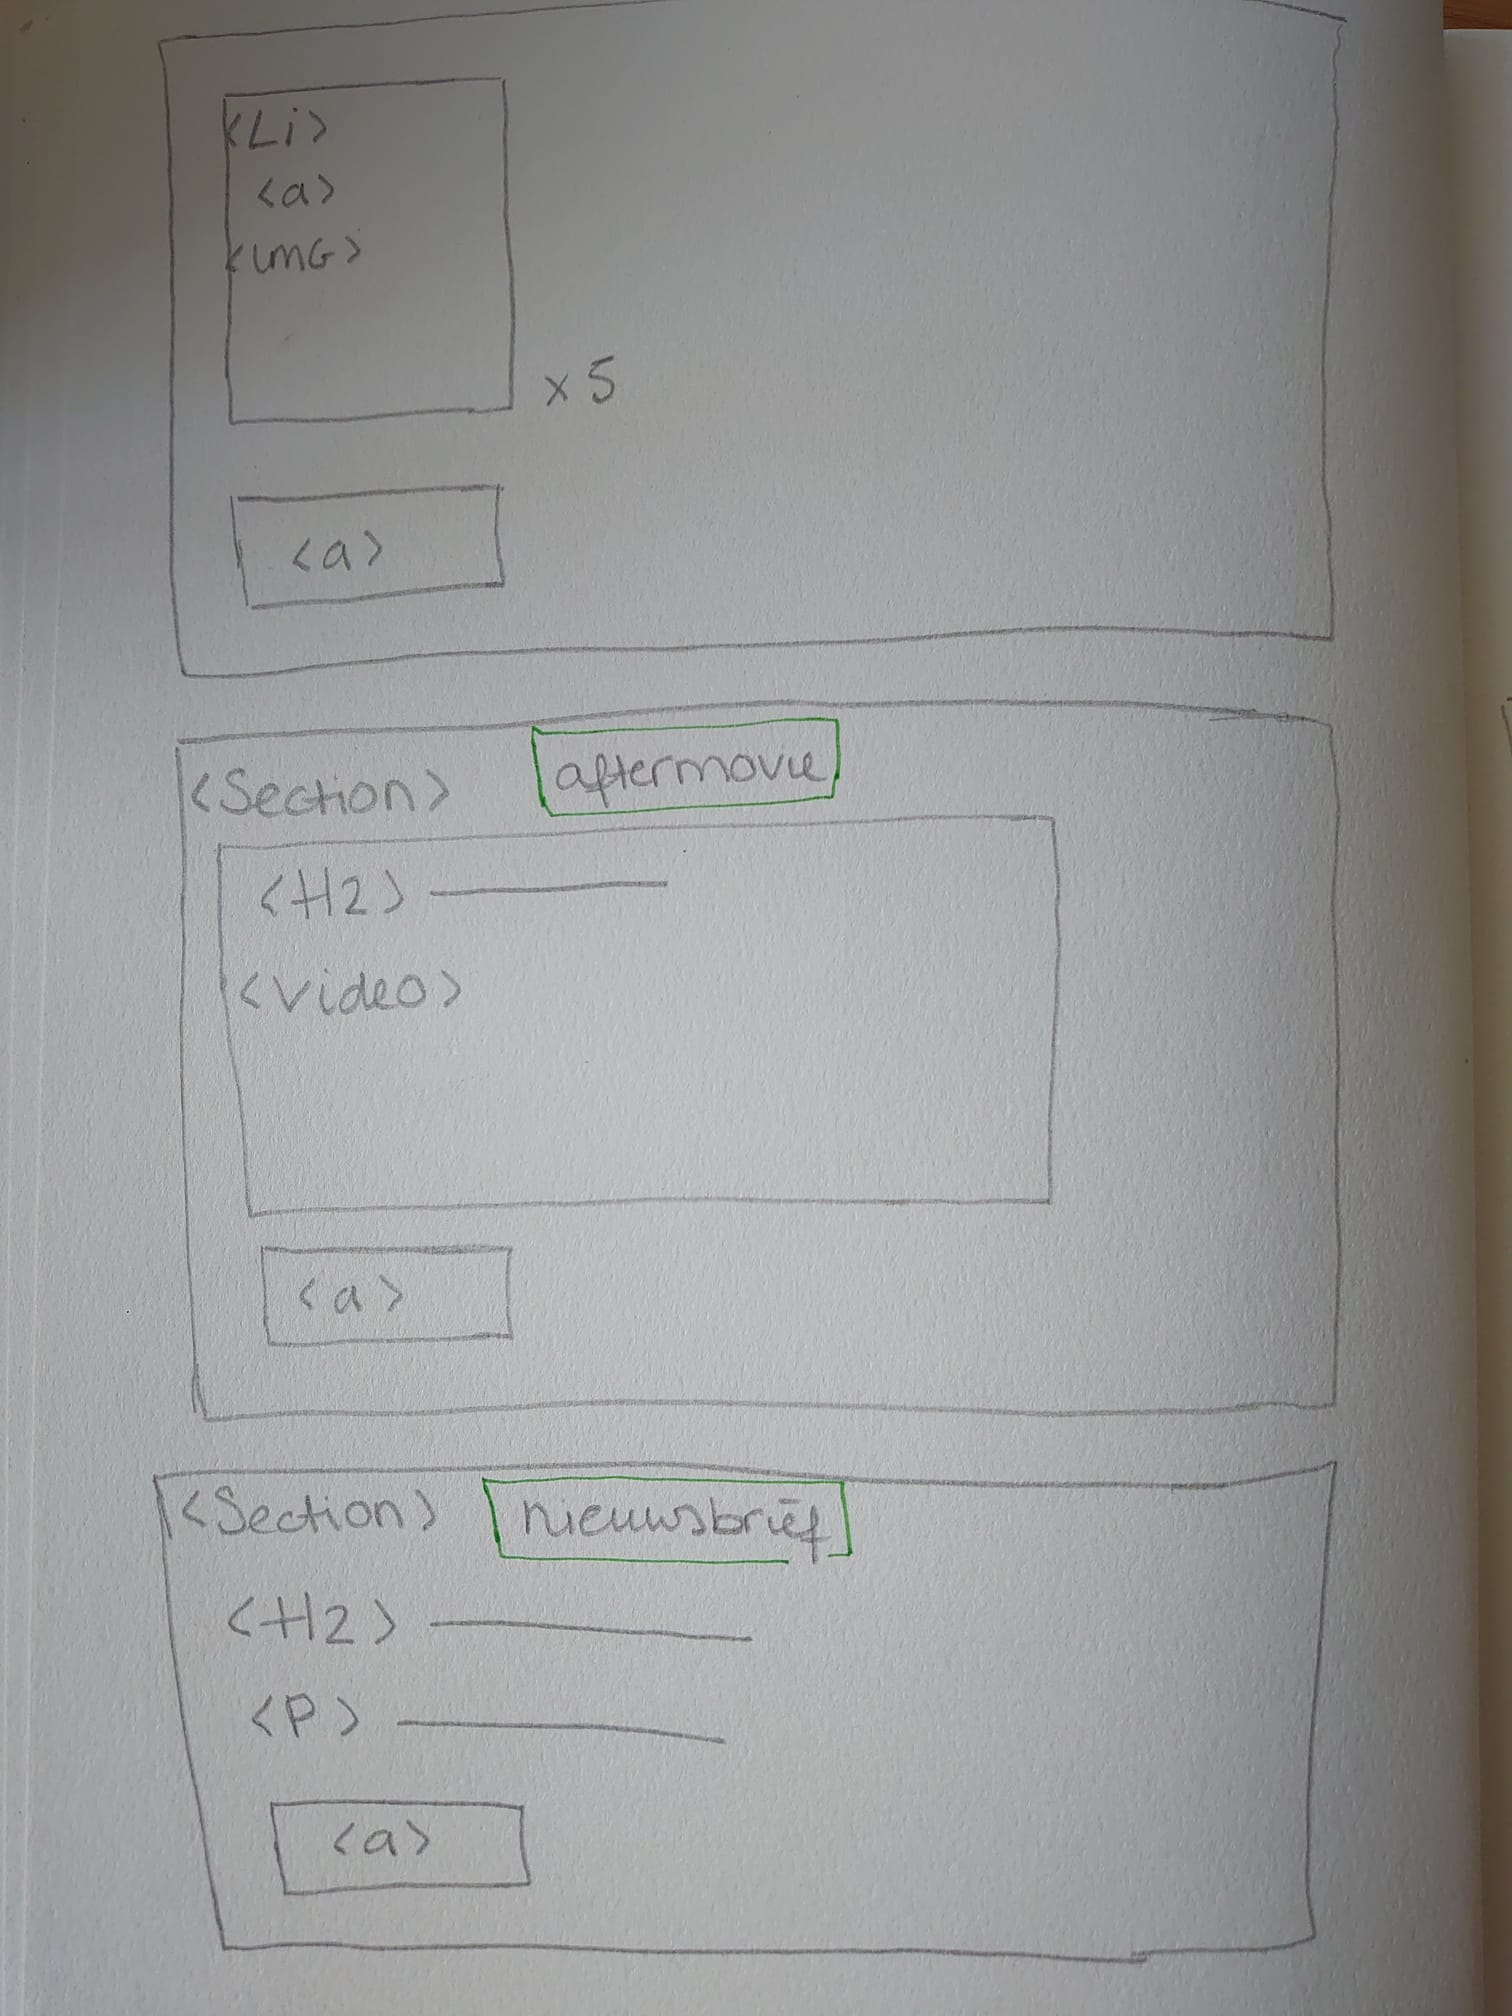 <Li>
<a>
<imG>
x 5
<a>
<Section> aftermovie
<H2>
<Video>
<a>
<Section> nieuwsbrief
<H2>
<P>
<a>